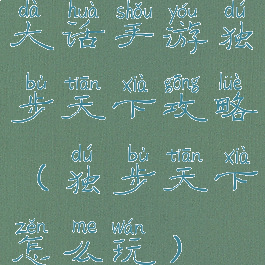 dà huà shǒu yóu dú
大话手游独
bù tiān xià gōng lüè
步天下攻略
dú bù tiān xià
（独步天下
zěn me wán
怎么玩）